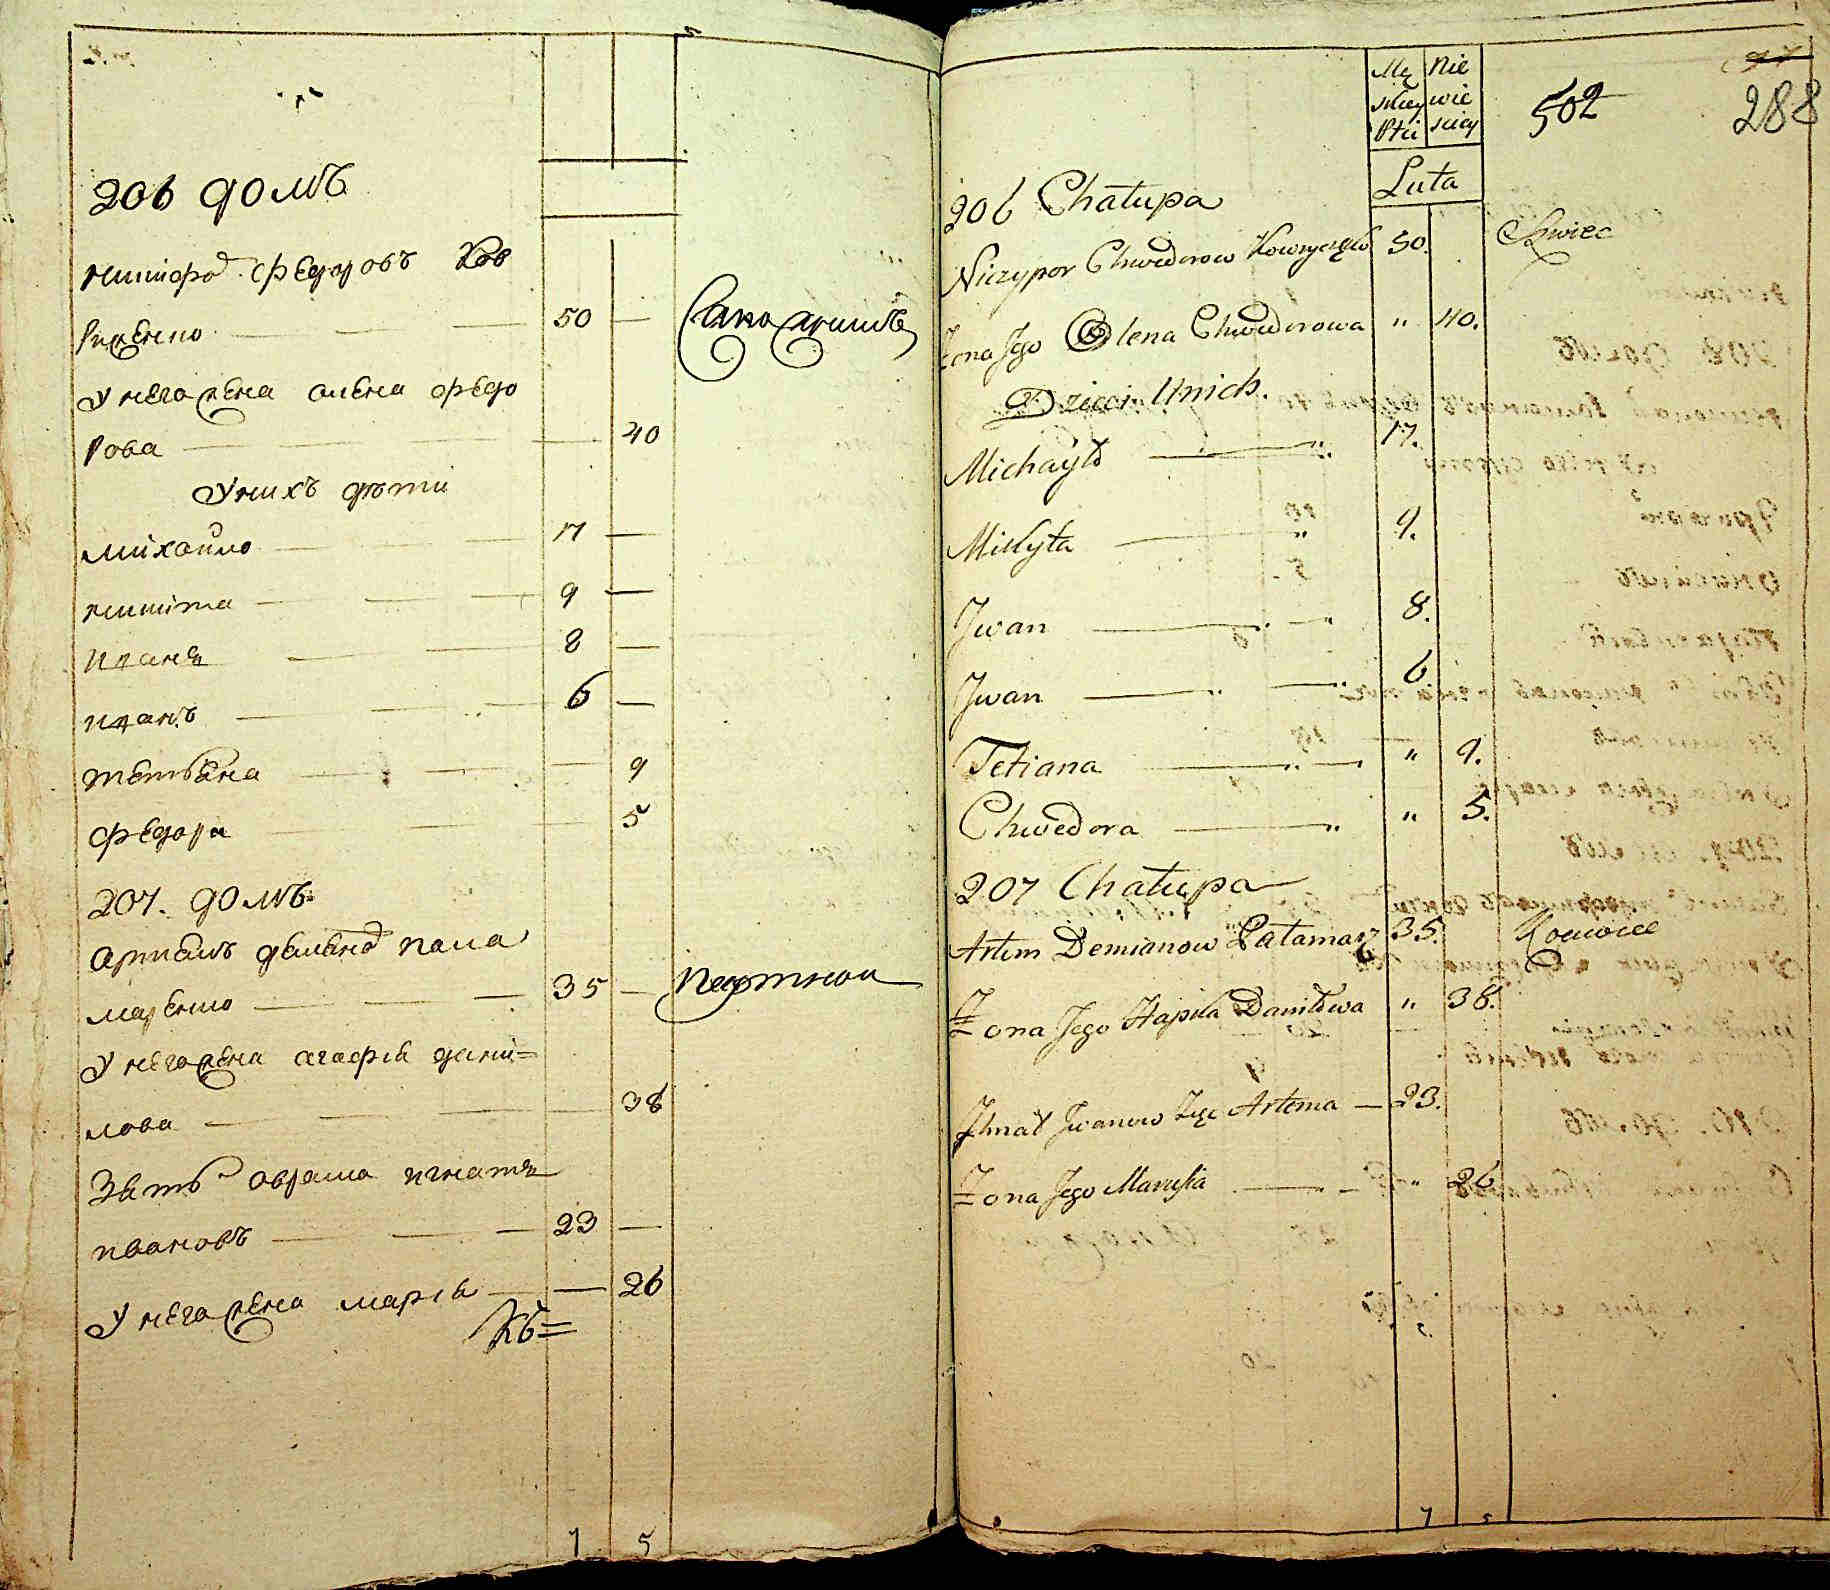 206 домъ
никифоръ федоровъ Ков
риженко 50 — Сапожникъ
У него жена олена федо
рова — 40
Унихъ дѣти
михайло 17 —
никита 9 —
иванъ 8 —
иванъ 6 —
татьяна — 9
федора — 5
207. домъ
артемъ демьяновъ пала
маренко 35 — портной
У него жена агафiя дани=
лова — 38
Зять артема игнатъ
ивановъ 23 —
У него жена марiя — 26
7 5
Mę Nie
skiey wie
Płci sciey
502
288
Luta
206 Chałupa
Niczypor Chwedorow Kowryżęko 50. Szwiec
Żona Jego Olena Chwedorowa " 40.
Dzieci Unich.
Michayło " 17.
Mikyta " 9.
Jwan " 8.
Jwan " 6
Tetiana " " 9.
Chwedora " " 5.
207 Chałupa
Artem Demianow Pałamarz 35. Krawiec
Żona Jego Hapka Daniłowa " 38.
Jhnat Jwanow Zięc Artema — 23.
Żona Jego Marusia " " 26
7 5